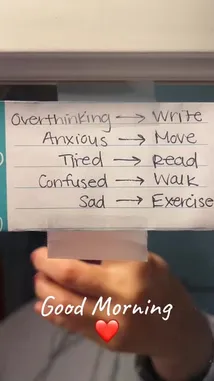 Overthinking → Write
Anxious → Move
Tired → Read
Confused → Walk
Sad → Exercise
Good Morning
❤️